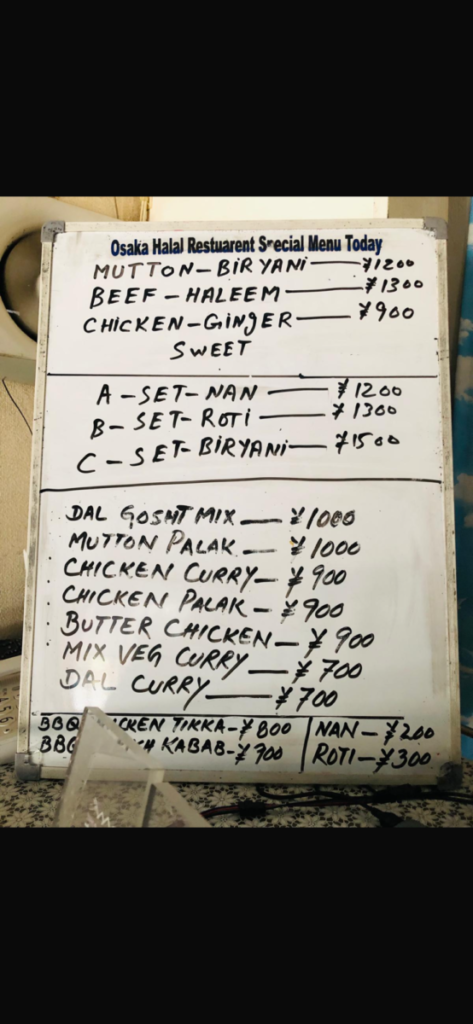 Osaka Halal Restuarent Special Menu Today
MUTTON-BIRYANI — ¥1200
BEEF-HALEEM — ¥1300
CHICKEN-GINGER — ¥900
SWEET
A-SET-NAN — ¥1200
B-SET-ROTI — ¥1300
C-SET-BIRYANI — ¥1500
DAL GOSHT MIX — ¥1000
MUTTON PALAK — ¥1000
CHICKEN CURRY — ¥900
CHICKEN PALAK — ¥900
BUTTER CHICKEN — ¥900
MIX VEG CURRY — ¥700
DAL CURRY — ¥700
BBQ CHICKEN TIKKA-¥800
KABAB-¥700
NAN-¥200
ROTI-¥300